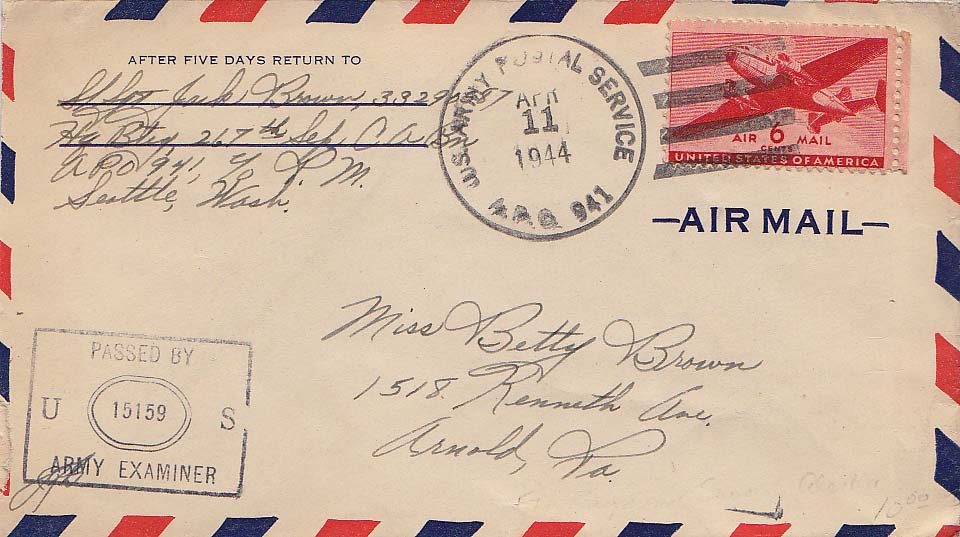 AFTER FIVE DAYS RETURN TO
S/Sgt Jack Brown,
Hq Btry 267th Sep. C A Bn
APO 941, % P. M.
Seattle, Wash.
U.S. ARMY POSTAL SERVICE
APR
11
1944
A.P.O. 941
AIR 6 MAIL
CENTS
UNITED STATES OF AMERICA
—AIR MAIL—
Miss Betty Brown
1518 Kenneth Ave.
Arnold, Pa.
PASSED BY
U 15159 S
ARMY EXAMINER
10.00